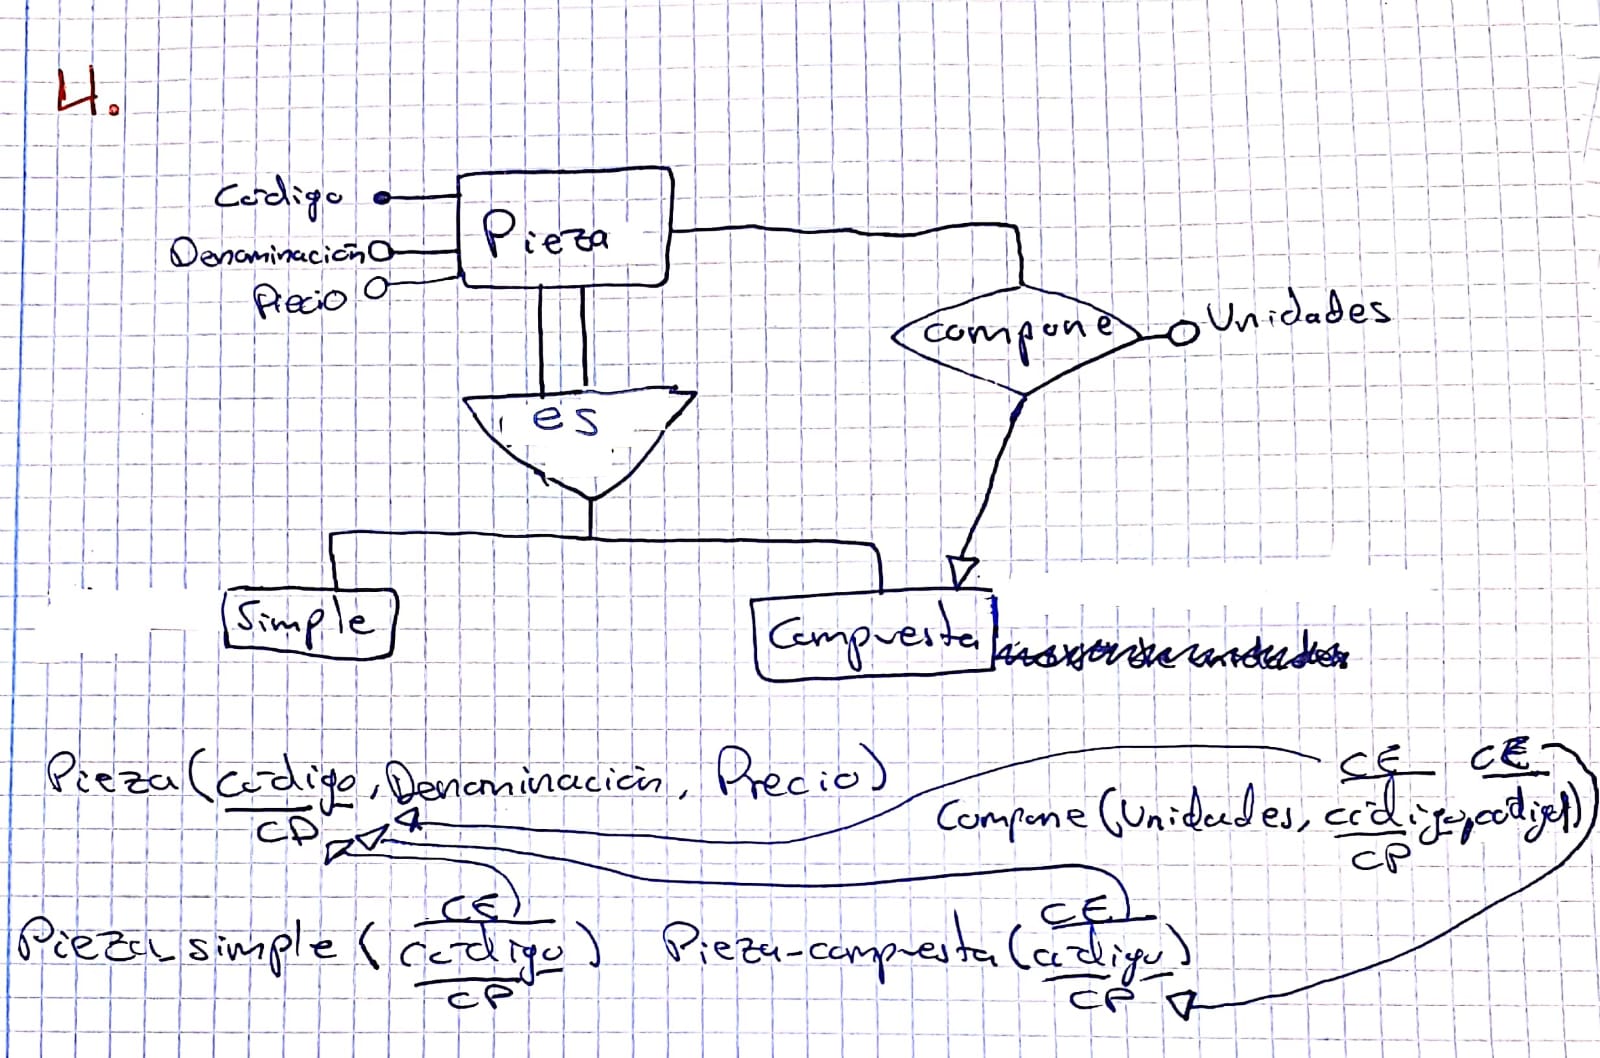 4.
Código
Pieza
Denominación
Precio
compone
Unidades
es
Simple
Compuesta
Pieza(código, Denominación, Precio)
CP
CE CE
Compone(Unidades, código, código1)
CP
CE
Pieza_simple(código)
CP
CE
Pieza-compuesta(código)
CP